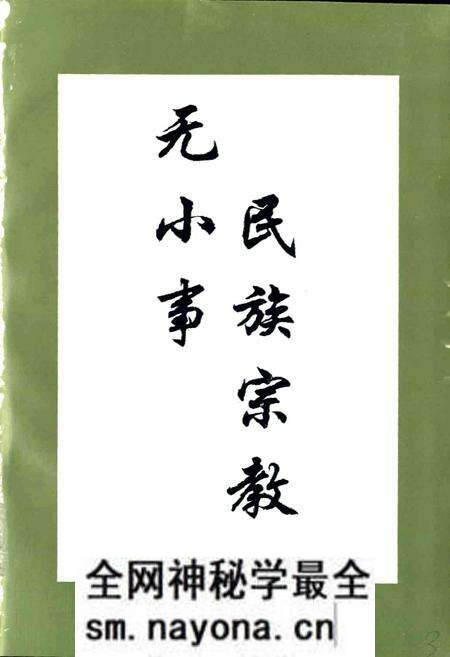 民族宗教
无小事
全网神秘学最全
sm.nayona.cn